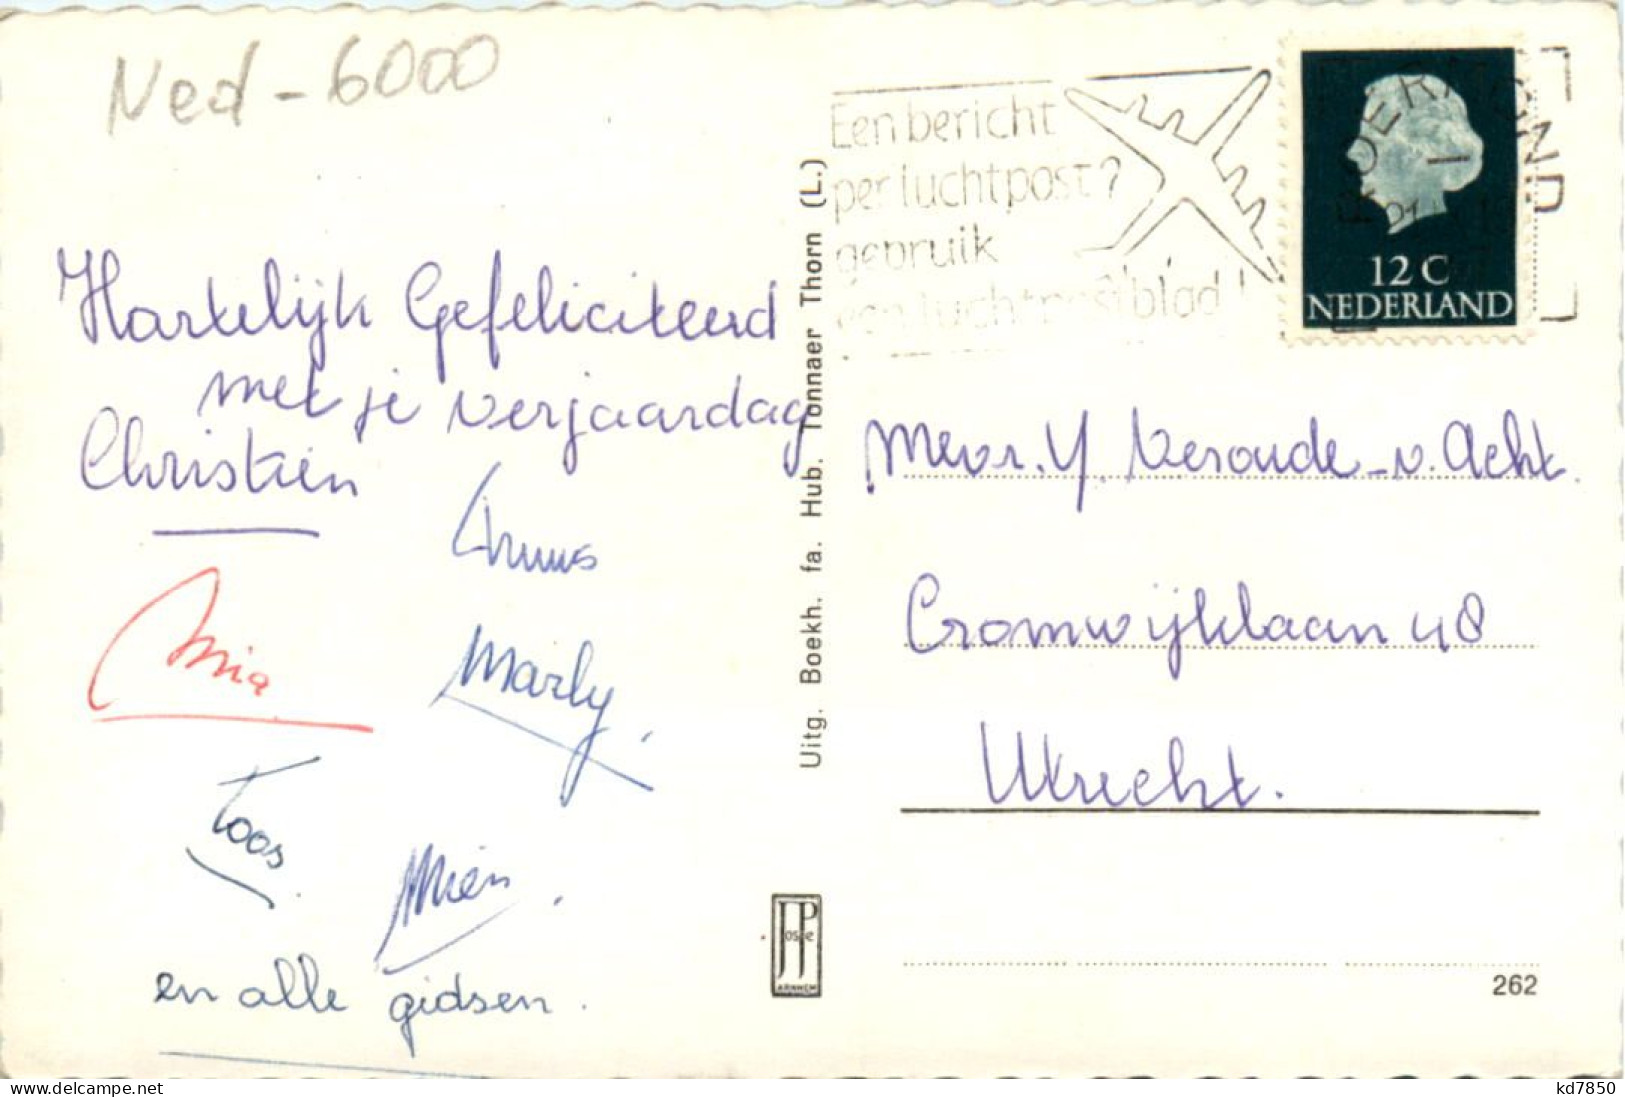 Ned - 6000
Een bericht
per luchtpost?
gebruik
een luchtpostblad!
ROERMOND
12 C
NEDERLAND
Hartelijk Gefeliciteerd
met je verjaardag
Christien
Truus
Mia
Marly.
Toos.
Mien.
en alle gidsen.
Uitg. Boekh. fa. Hub. Tonnaer Thorn (L.)
Mevr. Y. Veroude - v. Acht.
Cromwijklaan 48
Utrecht.
JosPe
ARNHEM
262
www.delcampe.net
kd7850